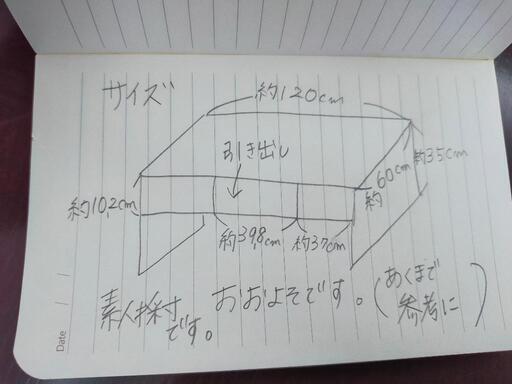 サイズ
約120cm
引き出し
約60cm
約35cm
約10,2cm
約39,8cm
約37cm
素人採寸です。
おおよそです。
(あくまで参考に)
Date